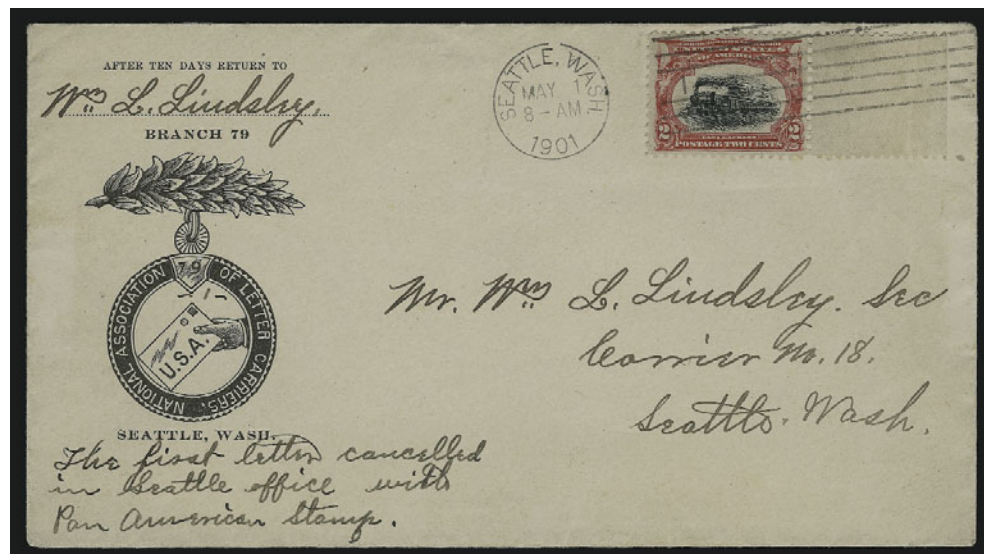 AFTER TEN DAYS RETURN TO
Wm L. Lindsley.
BRANCH 79
79
NATIONAL ASSOCIATION OF LETTER CARRIERS.
U.S.A.
SEATTLE, WASH.
The first letter cancelled
in Seattle office with
Pan American Stamp.
SEATTLE, WASH.
MAY 1
8 - AM
1901
UNITED STATES
OF AMERICA
2 2
POSTAGE TWO CENTS
Mr. Wm L. Lindsley. Sec
Carrier No. 18.
Seattle. Wash.